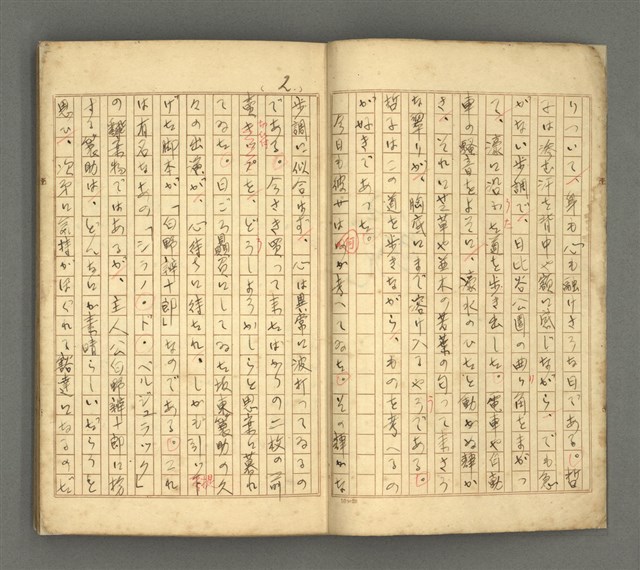 りついて、第も心も融けさうな日である。哲
子は滲む汗を背中や額に感じながら、でも急
がない歩調で、日比谷公園の曲り角をまがつ
て、濠に沿ふた道を歩き出した。電車や自動
車の騒音をよそに、濠水のひたと動かぬ輝か
き、それに芝草や並木の若葉の匂つて来さう
な翠りが、胸底にまで溶け入るやうである。
哲子はこの道を歩きながら、ものを考へるの
が好きであつた。
今日も彼女は何か考へてゐた。その静かな
2
歩調に似合はず、心は異常に波打つてゐるの
である。今さき買つて来たばかりの二枚の前
売を、どうしようかしらと思案に暮れ
てゐた。日ごろ贔屓にしてゐた坂東簑助の久
々の出演が、心待ちに待たれ、しかも引つ
げた脚本が「白野辨十郎」なのである。これ
は有名な、の「シラノ・ド・ベルジュラック」
の翻案物ではあるが、主人公白野辨十郎に扮
する簑助は、どんなにか素晴らしいだらうと
思ひ、次第に気持がほぐれて豁達になるのだ